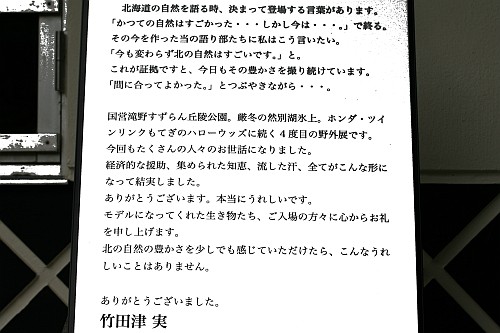 北海道の自然を語る時、決まって登場する言葉があります。
「かつての自然はすごかった・・・しかし今は・・・。」で終る。
その今を作った当の語り部たちに私はこう言いたい。
「今も変わらず北の自然はすごいです。」と。
これが証拠ですと、今日もその豊かさを撮り続けています。
「間に合ってよかった。」とつぶやきながら・・・。
国営滝野すずらん丘陵公園。厳冬の然別湖氷上。ホンダ・ツイ
ンリンクもてぎのハローウッズに続く４度目の野外展です。
今回もたくさんの人々のお世話になりました。
経済的な援助、集められた知恵、流した汗、全てがこんな形に
なって結実しました。
ありがとうございます。本当にうれしいです。
モデルになってくれた生き物たち、ご入場の方々に心からお礼
を申し上げます。
北の自然の豊かさを少しでも感じていただけたら、こんなうれ
しいことはありません。
ありがとうございました。
竹田津 実